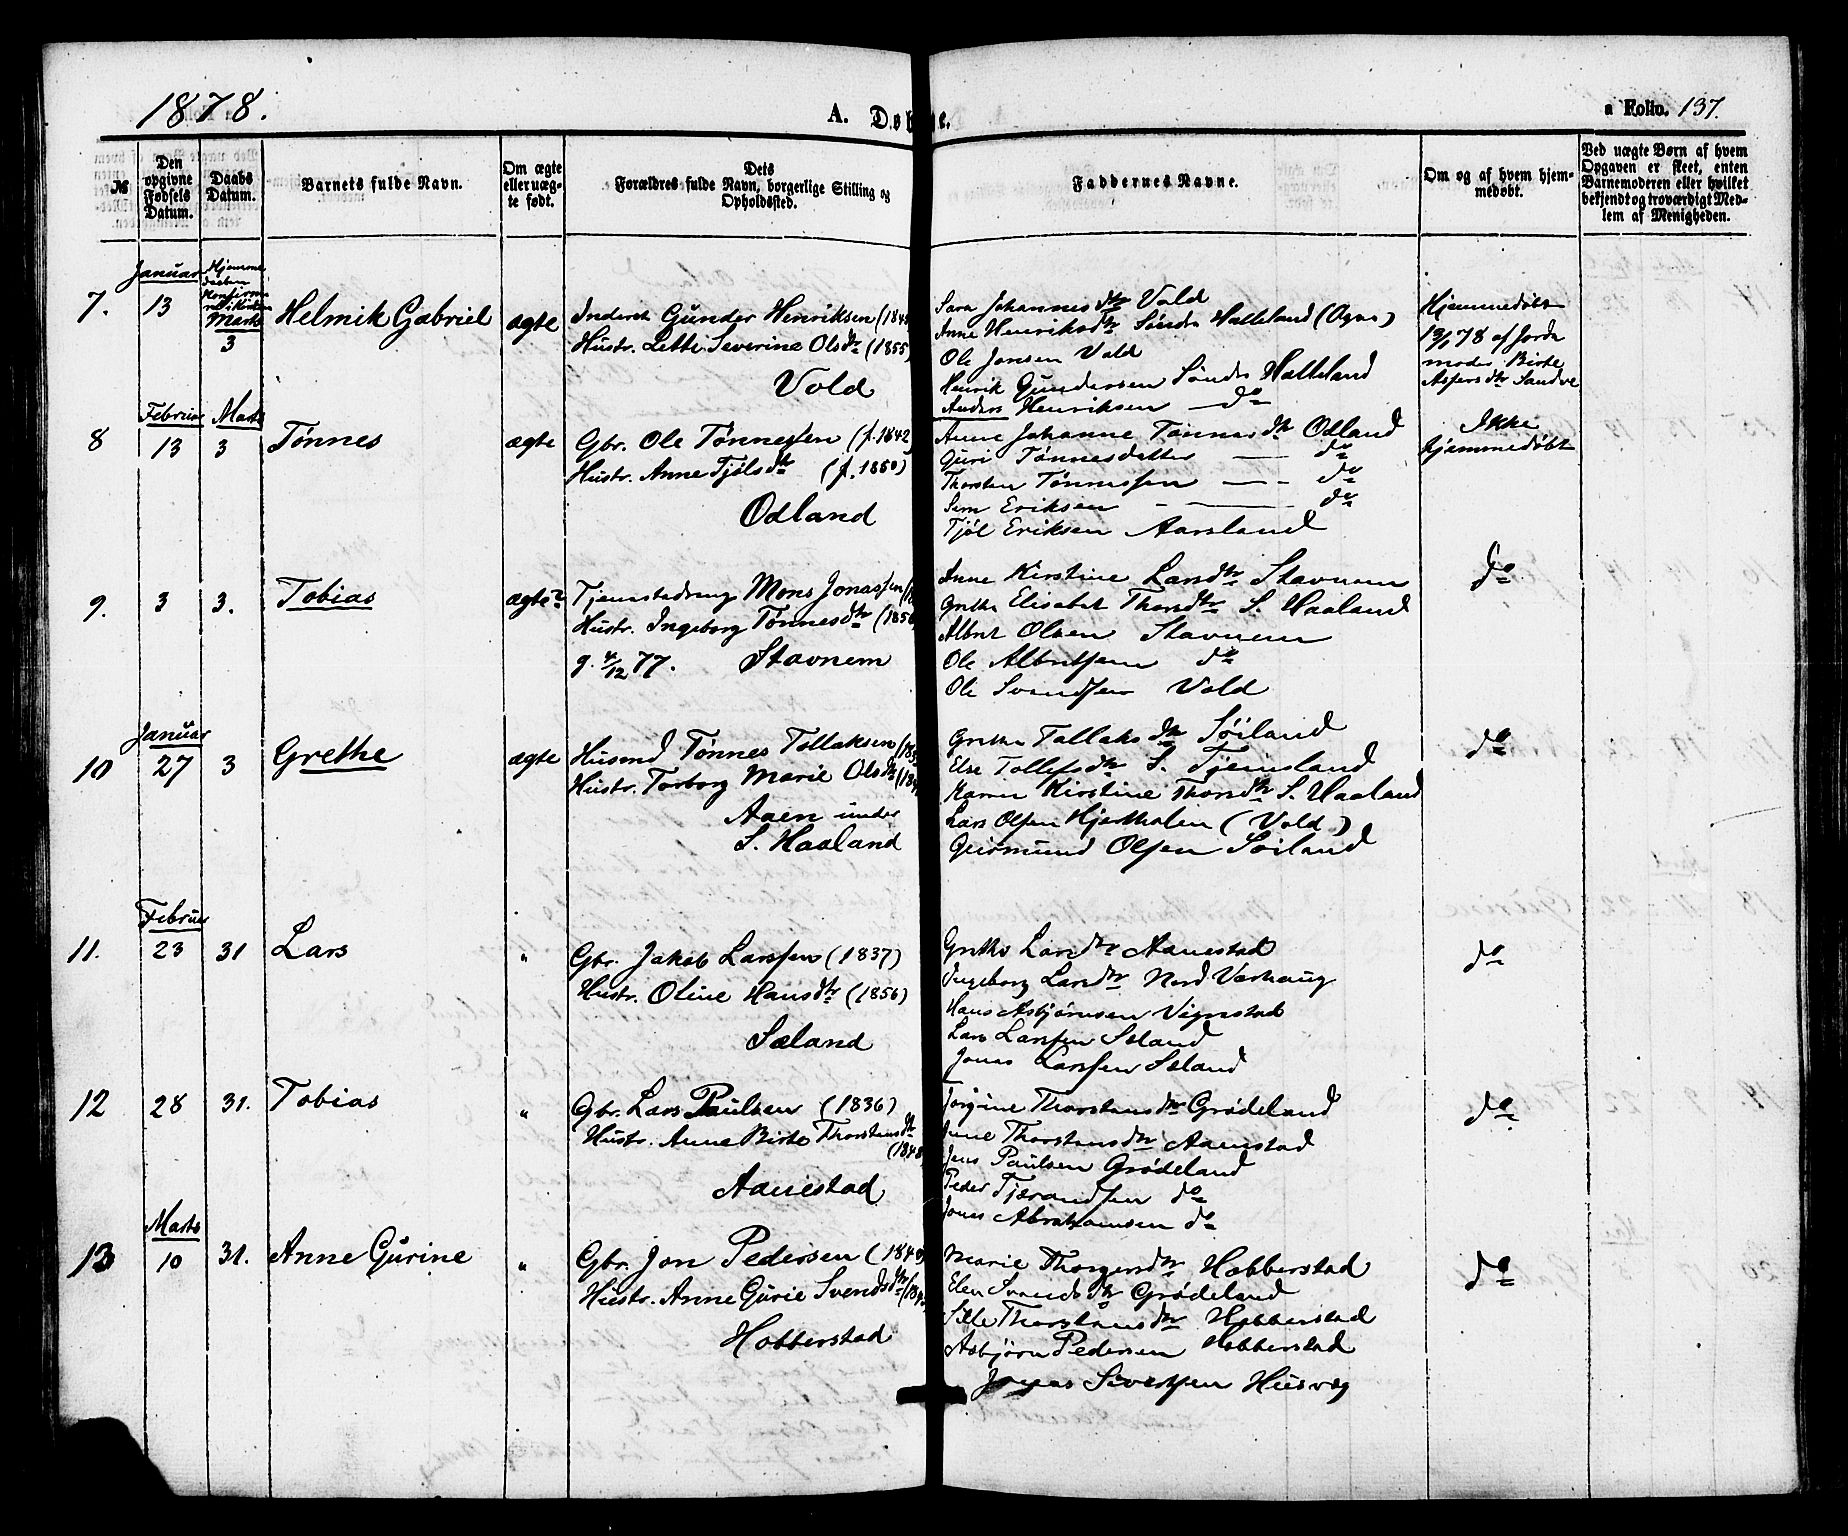 1878.
A. Døbte.
a Folio. 137.
№
Den opgivne Fødsels Datum.
Daabs Datum.
Barnets fulde Navn.
Om ægte eller uægte født.
Dets Forældres fulde Navn, borgerlige Stilling og Opholdssted.
Faddernes Navne.
Om og af hvem hjemmedøbt.
Ved uægte Børn af hvem Opgaven er skeet, enten Barnemoderen eller hvilket bekjendt og troværdigt Medlem af Menigheden.
7. Januar 13
Hjemmedaaben
i Kirken
Marts
3
Helmik Gabriel
ægte
Inderst Gunder Henriksen
Hustr. Lette Severine Olsdtr (1855)
Vold
Sara Johannesdtr Vold
Anne Henriksdtr Søndre Hatleland (Ogna)
Ole Jonsen Vold
Henrik Gundersen Søndre Hatleland
Anders Henriksen — do
Hjemmedøbt
13/1 78 af Jorde
moder Birte
Aspersdtr Sandve
8
Februar 13
Marts 3
Tønnes
ægte
Gbr. Ole Tønnessen (f. 1842)
Hustr. Anne Tjølsdtr (f. 1850)
Odland
Anne Johanne Tønnesdtr Odland
Guri Tønnesdatter — do
Thorsten Tønnessen — do
Sem Eriksen — do
Tjøl Eriksen Aarsland
Ikke
hjemmedøbt
9.
3
3.
Tobias
ægte?
Tjenestedreng Mons Jonassen
Hustr. Ingeborg Tønnesdtr
g. 4/12 77. Stavnem
Anne Kirstine Larsdtr Stavnem
Grethe Elisabet Thorsdtr S. Haaland
Albret Olsen Stavnem
Ole Albretsen do
Ole Svendsen Vold
do
10
Januar 27
3
Grethe
ægte
Husmd Tønnes Tollaksen
Hustr. Torborg Marie Olsdtr
Aaen under
S. Haaland
Grethe Tallaksdtr Søiland
Else Tollefsdtr S. Tjemsland
Karen Kirstine Thorsdtr S. Haaland
Lars Olsen Hjertholen (Vold)
Geirmund Olsen Søiland
do
11.
Februar 23
31
Lars
"
Gbr. Jakob Larssen (1837)
Hustr. Oline Hansdtr (1856)
Sæland
Grethe Larsdtr Aanestad
Ingeborg Larsdtr Nord Varhaug
Hans Asbjørnsen Vignestad
Lars Larssen Sæland
Jonas Larssen Sæland
do
12
28
31.
Tobias
"
Gbr. Lars Paulsen (1836)
Hustr. Anne Birte Thorstensdtr
(1848)
Aanestad
Jørgine Thorstensdtr Grødeland
Anne Thorstensdtr Aanestad
Jens Paulsen Grødeland
Peder Tjærandsen do
Jonas Abrahamsen do
do
13
Marts 10
31.
Anne Gurine
"
Gbr. Jon Pedersen
Hustr. Anne Gurie Svendsdtr
Hobberstad
Marie Thorgersdtr Hobberstad
Elen Svendsdtr Grødeland
Sille Thorstensdtr Hobberstad
Asbjørn Pedersen Hobberstad
Jonas Sivertsen Husveg
do